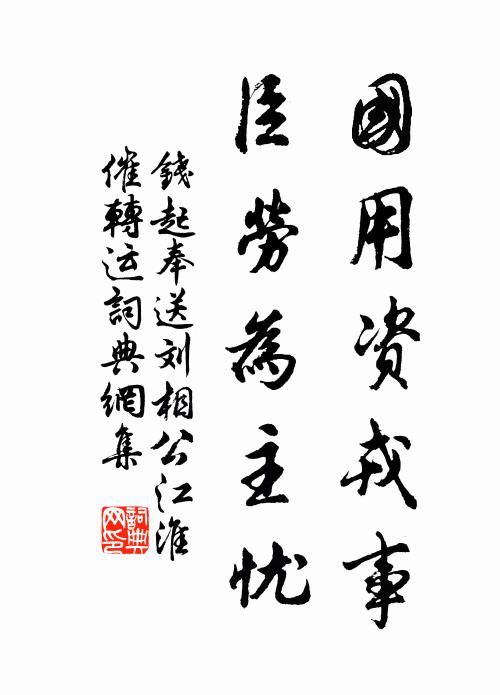 國用資戎事
臣勞為主忧
錢起奉送刘相公江淮
催轉运詞典網集
詞典
网印